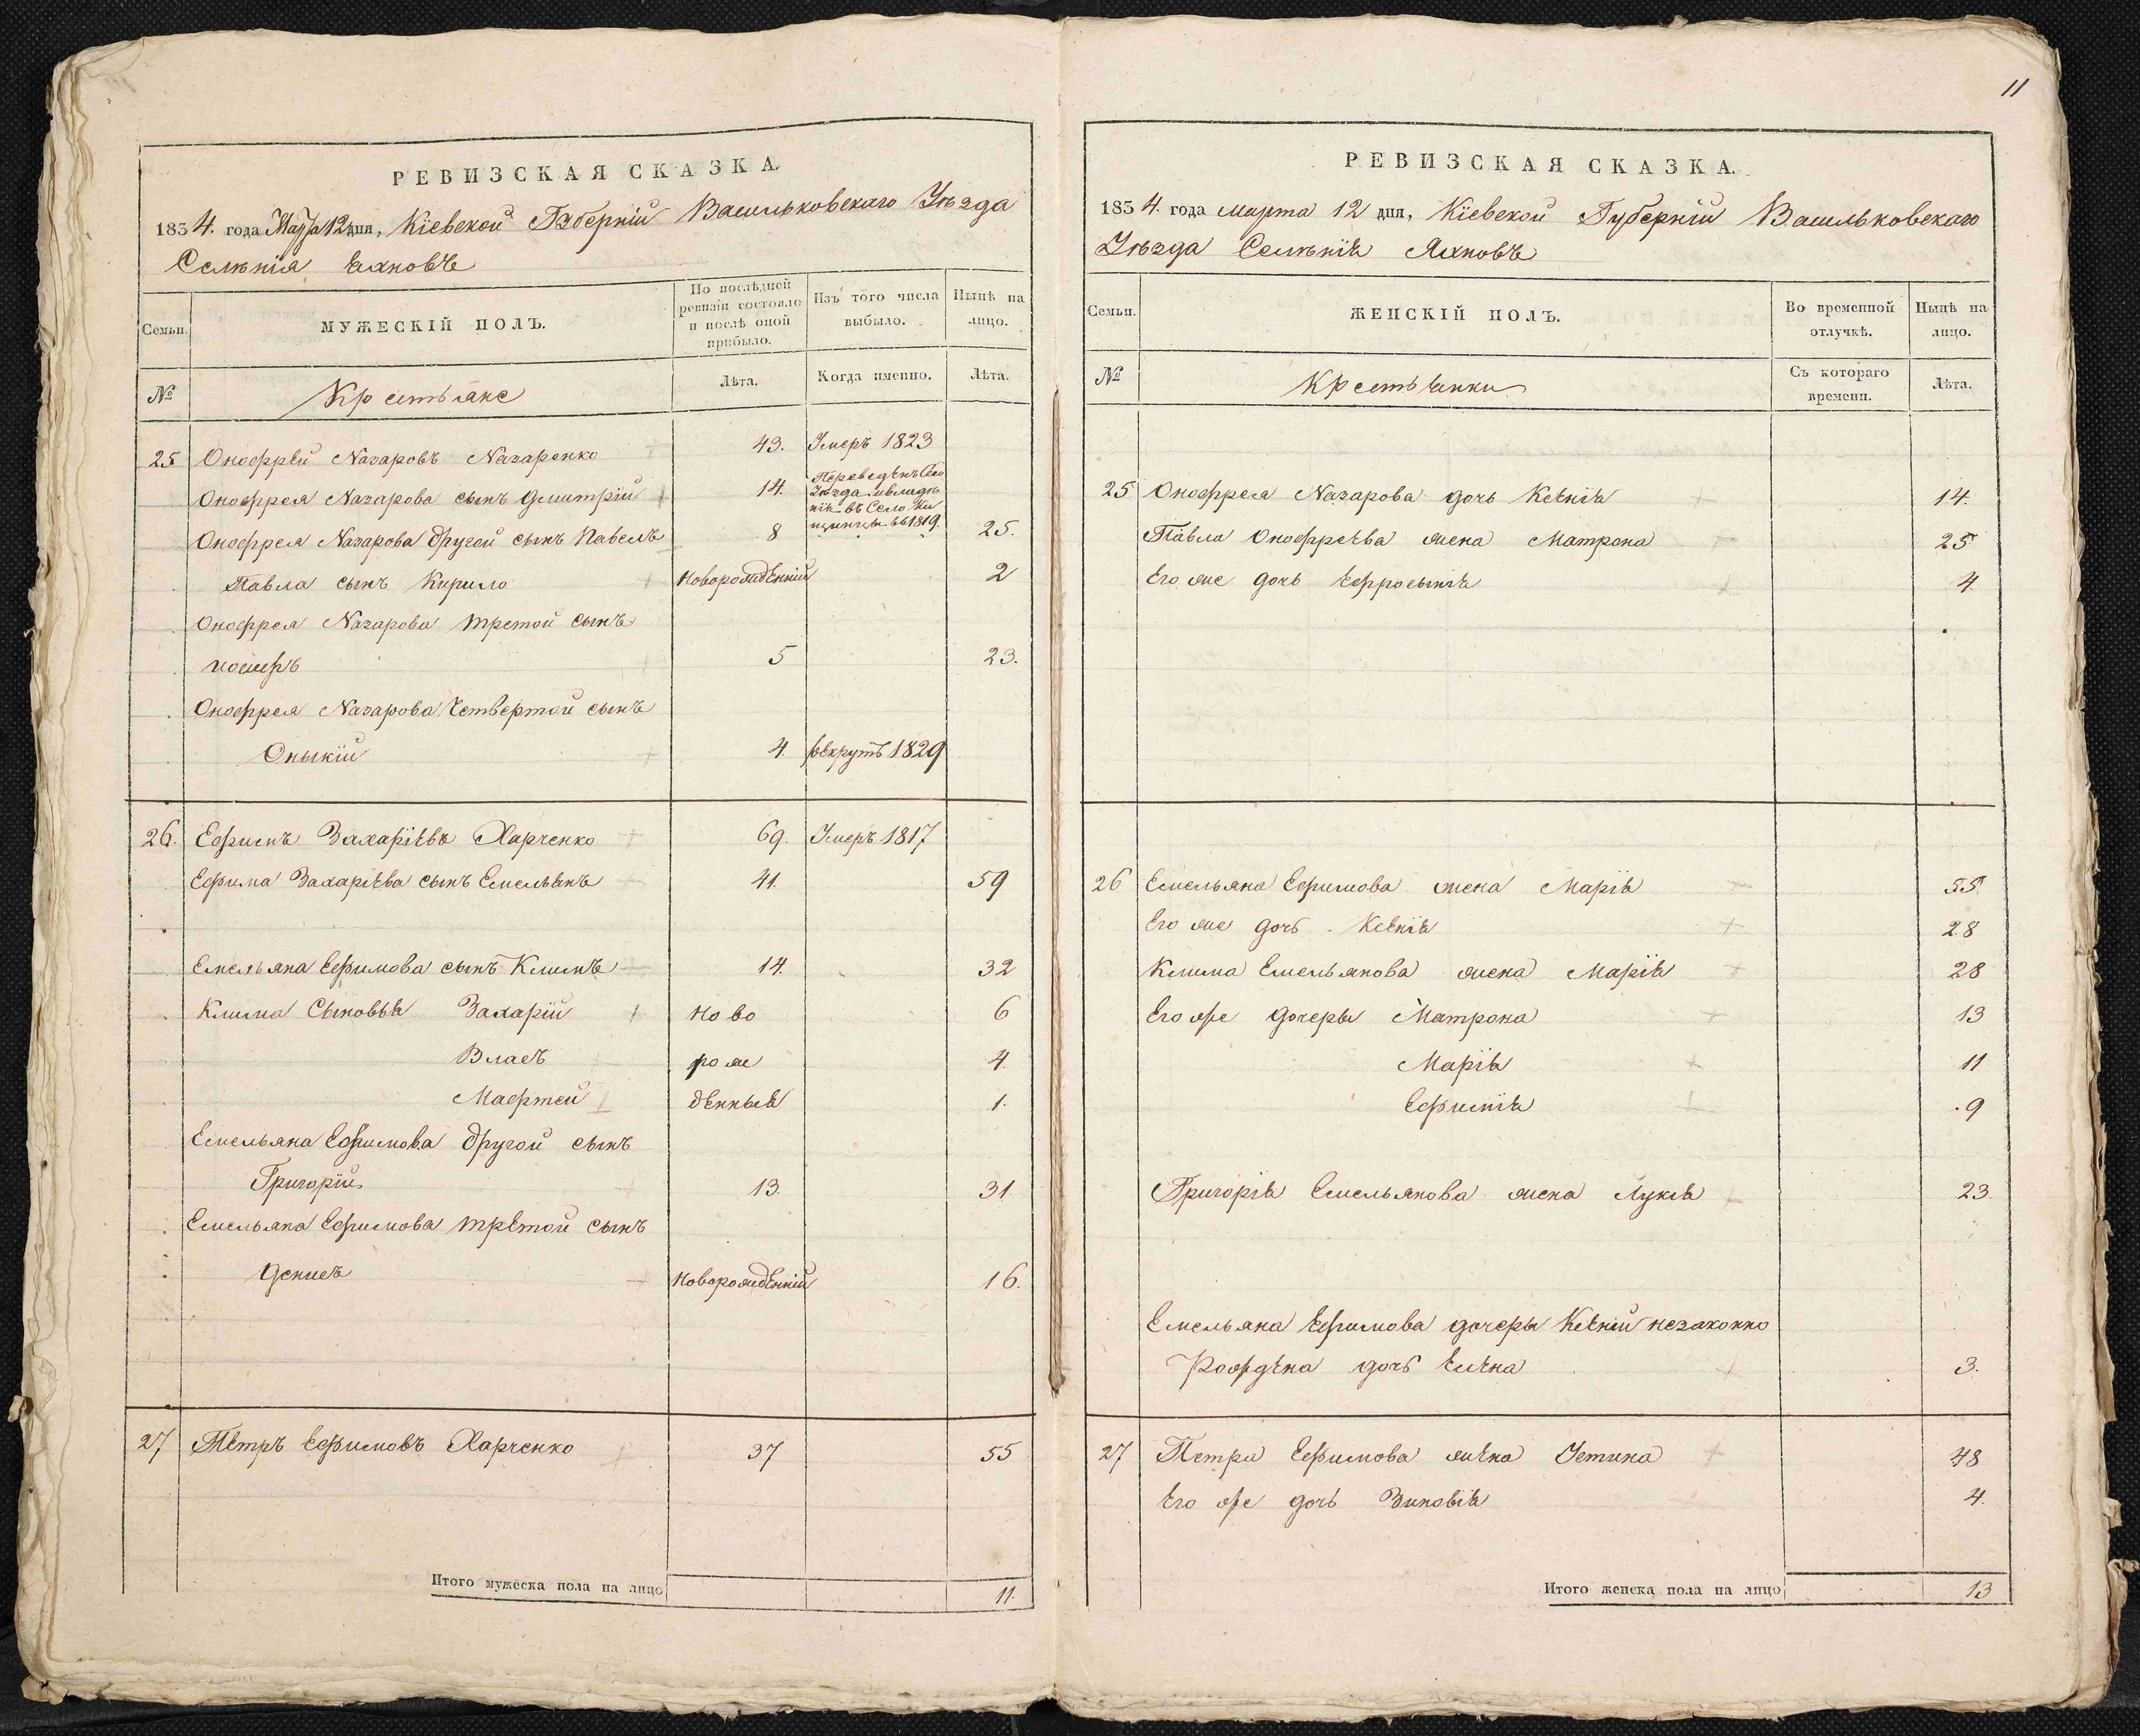 11
РЕВИЗСКАЯ СКАЗКА.
1834. года Марта 12 дня, Кіевской Губерніи Васильковскаго Уѣзда
Селѣнія Яхновъ
Семьи.
МУЖЕСКІЙ ПОЛЪ.
По послѣдней ревизіи состояло и послѣ оной прибыло.
Изъ того числа выбыло.
Нынѣ на лицо.
№
Крестьяне
Лѣта.
Когда именно.
Лѣта.
25 Онофрей Назаровъ Назаренко 43. Умеръ 1823
Онофрея Назарова сынъ Дмитрій 14. Переведенъ
Уѣзда въ Село 1819.
Онофрея Назарова другой сынъ Павелъ 8 25.
Павла сынъ Кирило Новорожденній 2
Онофрея Назарова третой сынъ
5 23.
Онофрея Назарова Четвертой сынъ
Оныкій 4. рекрутъ 1829
26. Ефимъ Захаріевъ Харченко 69. Умеръ 1817
Ефима Захаріева сынъ Емельянъ 41. 59
Емельяна Ефимова сынъ Климъ 14. 32
Клима Сыновья Захарій Ново 6
Власъ рож 4.
Мафтей денныя 1.
Емельяна Ефимова другой сынъ
Григорій 13. 31.
Емельяна Ефимова третой сынъ
Денисъ Новорожденній 16.
27 Петръ Ефимовъ Харченко 37 55
Итого мужеска пола на лицо 11.
РЕВИЗСКАЯ СКАЗКА.
1834. года марта 12 дня, Кіевской Губерніи Васильковскаго
Уѣзда Селѣнія Яхновъ
Семьи.
ЖЕНСКІЙ ПОЛЪ.
Во временной отлучкѣ.
Нынѣ на лицо.
№
Крестьянки
Съ котораго времени.
Лѣта.
25 Онофрея Назарова дочь Ксенія 14.
Павла Онофреева жена Матрона 25
Его же дочь Ефросынія 4
26 Емельяна Ефимова жена Марія 55.
Его же дочь Ксенія 28
Клима Емельянова жена Марія 28
Его же дочеры Матрона 13
Марія 11
Ефимія 9
Григорія Емельянова жена Лукія 23.
Емельяна Ефимова дочеры Ксеніи незаконно
Рождена дочь Елена 3.
27 Петра Ефимова жена Устина 48
Его же дочь Зиновія 4.
Итого женска пола на лицо 13